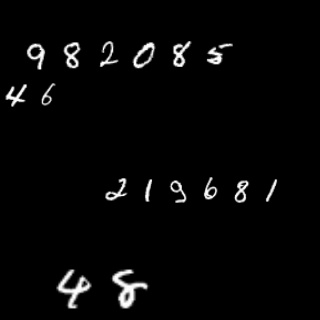 982085
46
219681
48